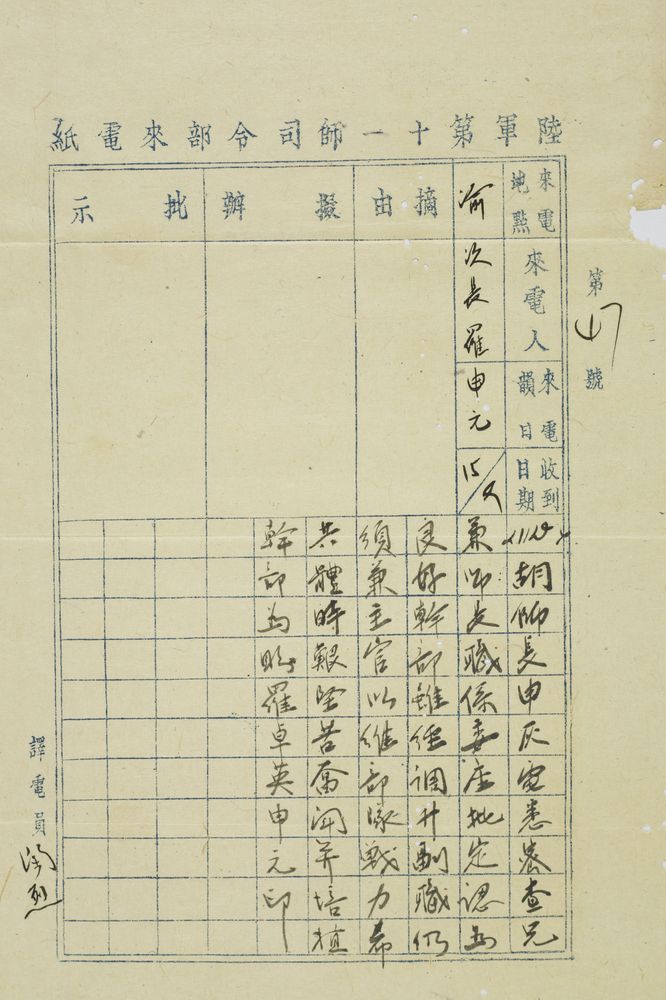 陸軍第十一師司令部來電紙
第47號
來電地點
來電人
來電韻目
收到日期
渝
次長羅
申元
15/9
摘由
擬辦
批示
胡師長申灰電悉查兄
兼師長職係委座批定認為
良好幹部雖經調升副職仍
須兼主官以維部隊戰力希
共體時艱堅苦奮鬥并培植
幹部為盼羅卓英申元印
譯電員